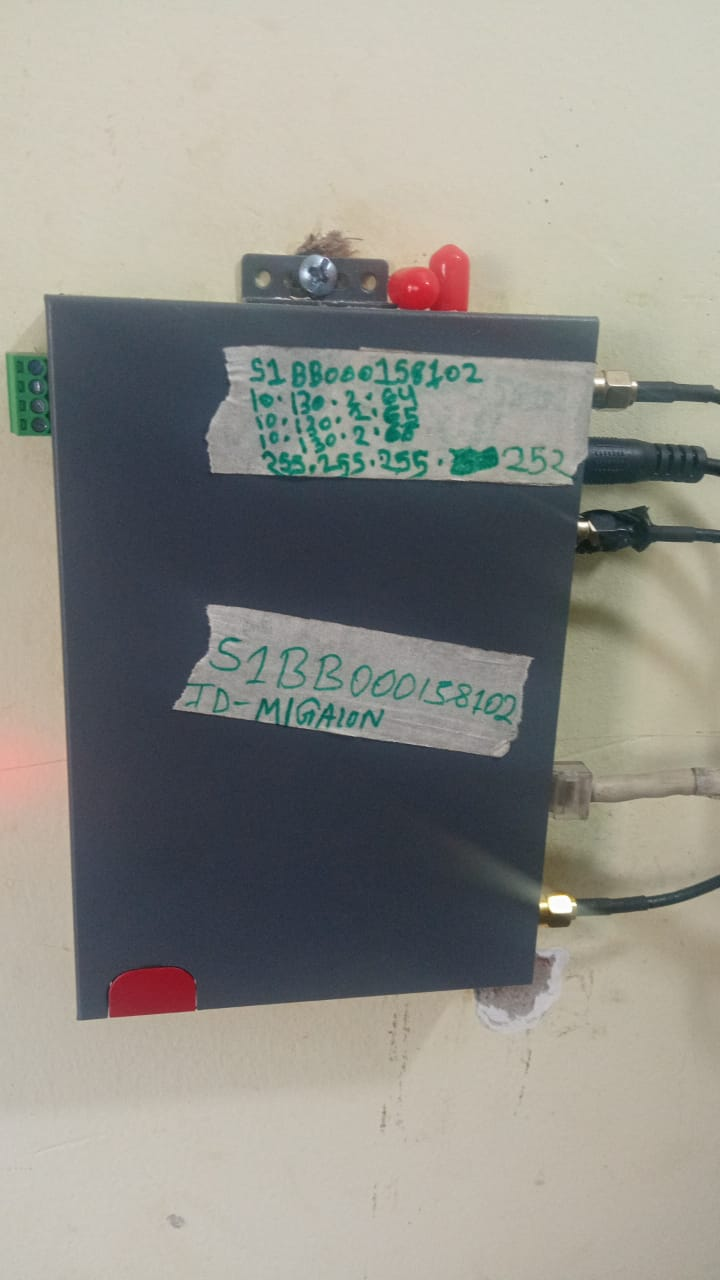 S1BB000158102
10.130.2.64
10.130.2.65
10.130.2.68
255.255.255. 252
S1BB000158102
ID-MIGAION